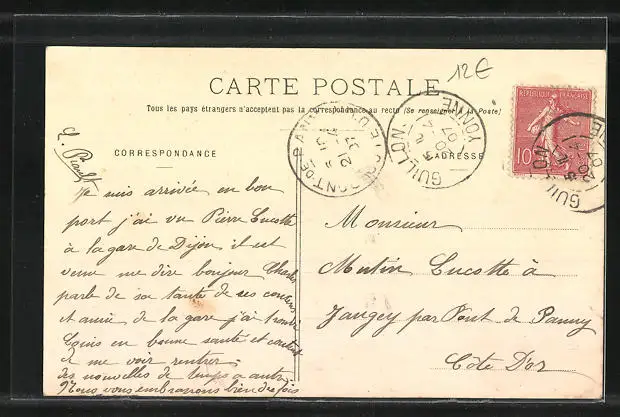 12€
CARTE POSTALE
Tous les pays étrangers n'acceptent pas la correspondance au recto (Se renseigner à la Poste)
CORRESPONDANCE
ADRESSE
REPUBLIQUE FRANÇAISE
10
GUILLON
YONNE
GUILLON
Je suis arrivée en bon
port j'ai vu Pierre Lucotte
à la gare de Dijon il est
venu me dire bonjour Charles
parle de sa tante de ses cousins
et amie de la gare j'ai trouvé
Louis en bonne santé et content
de me voir rentrer,
des nouvelles de temps a autre
Nous vous embrassons bien des fois
Monsieur
Mutin Lucotte à
Jangey par Pont de Panny
Côte D'or